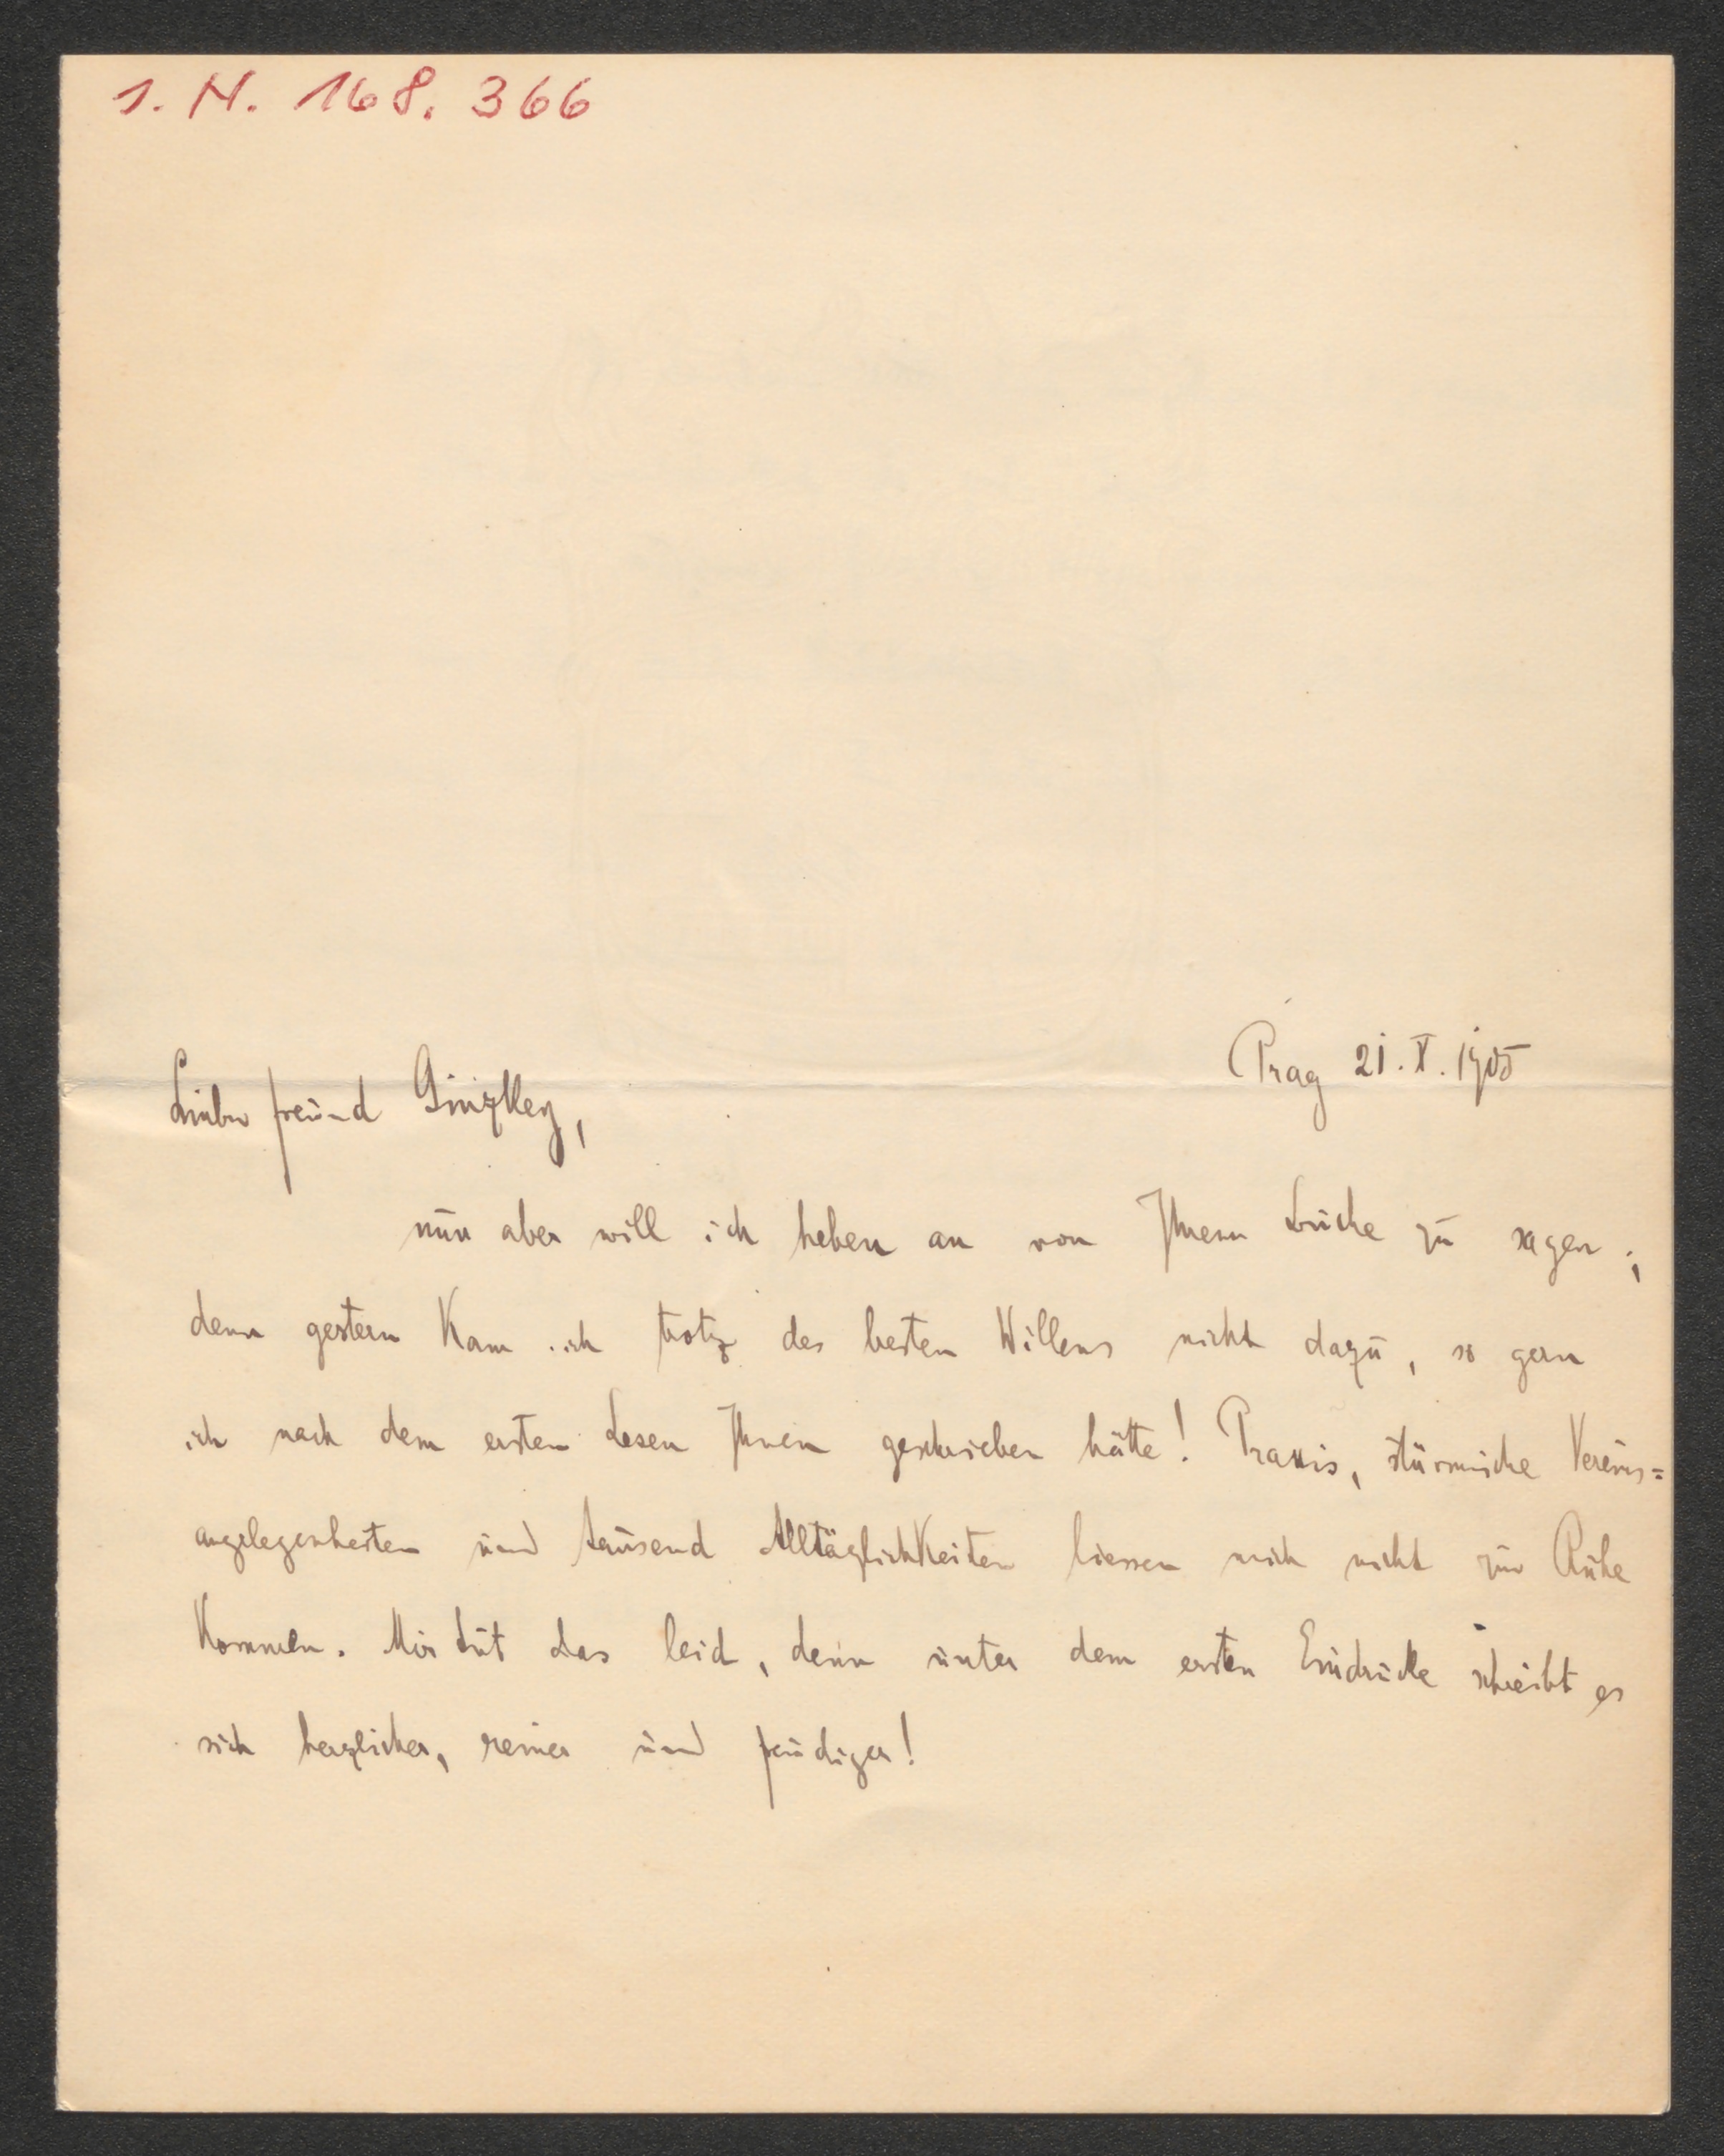 I. N. 168.366
Prag 21. X. 1905
Lieber Freund Ginzkey,
nun aber will ich heben an von Ihrem Buche zu sagen;
denn gestern kam ich trotz des besten Willens nicht dazu, so gern
ich nach dem ersten Lesen Ihnen geschrieben hätte! Praxis, stürmische Vereins=
angelegenheiten und tausend Alltäglichkeiten liessen mich nicht zur Ruhe
kommen. Mir tut das leid, denn unter dem ersten Eindrucke schreibt es
sich herzlicher, reiner und freudiger!